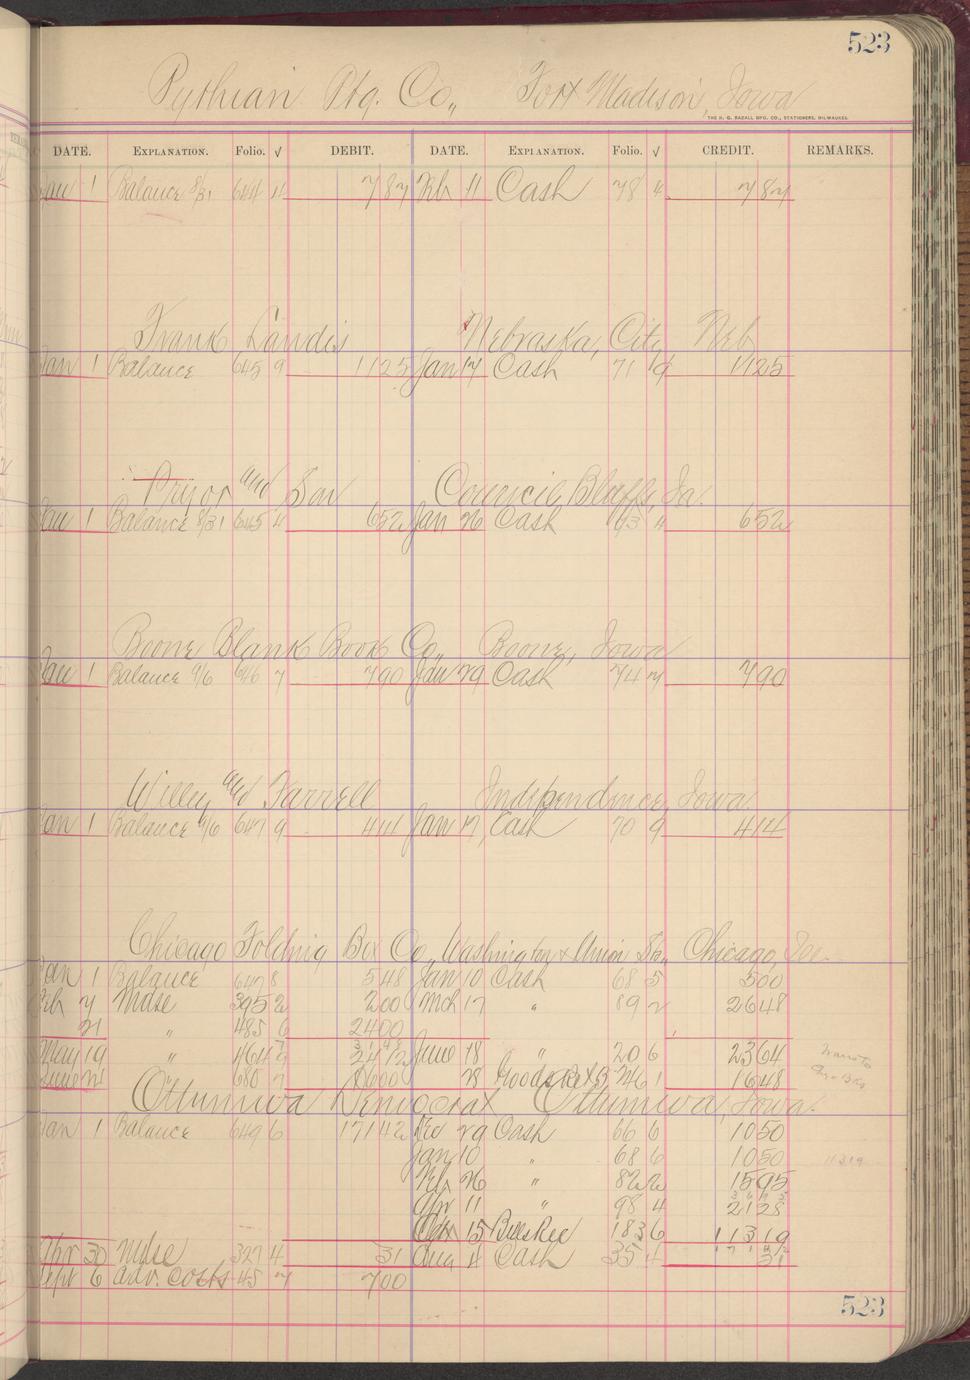 523
Pythian Ptg. Co., Fort Madison, Iowa
THE H. G. RAZALL MFG. CO., STATIONERS, MILWAUKEE.
DATE. EXPLANATION. Folio. √ DEBIT. DATE. EXPLANATION. Folio. √ CREDIT. REMARKS.
Jan 1 Balance 8/31 644 4 787 Feb 11 Cash 78 4 787
Frank Landis Nebraska, City Neb
Jan 1 Balance 645 9 1125 Jan 17 Cash 71 9 1125
Pryor and Son Council Bluffs, Ia.
Jan 1 Balance 8/31 645 4 652 Jan 26 Cash 73 4 652
Boone Blank Book Co., Boone, Iowa
Jan 1 Balance 9/6 646 7 790 Jan 29 Cash 74 7 790
Willey and Farrell Independence, Iowa
Jan 1 Balance 9/6 647 9 414 Jan 17 Cash 70 9 414
Chicago Folding Box Co., Washington & Union Sts, Chicago, Ill.
Jan 1 Balance 647 8 548 Jan 10 Cash 68 5 500
Feb 7 Mdse 395 2 200 Mch 17 " 89 2 2648
21 " 485 6 2400
May 19 " 464 9 2412 June 18 " 20 6 2364
June 21 680 7 1600 28 Goods Retd 246 1 1648
Ottumwa Democrat Ottumwa, Iowa.
Jan 1 Balance 649 6 17142 Dec 29 Cash 66 6 1050
Jan 10 " 68 6 1050
11319
Feb 26 " 82 2 1595
Apr 11 " 98 4 2128
Apr 15 Bills Rec 183 6 11319
Apr 30 Mdse 327 4 31 Aug 4 Cash 35 4 31
Sept 6 Adv. Costs 45 7 700
523